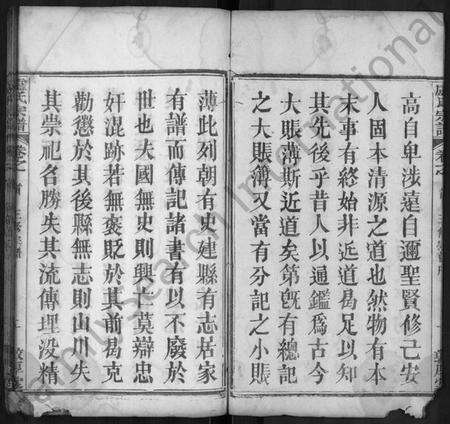 高自卑涉遠自邇聖賢修己安
人固本清源之道也然物有本
末事有終始非近道曷足以知
其先後乎昔人以通鑑為古今
大賬簿斯近道矣第旣有總記
之大賬簿又當有分記之小賬
薄此列朝有史建縣有志居家
有譜而傳記諸書有以不廢於
世也夫國無史則興亡莫辯忠
奸混跡若無褒貶於其前曷克
勸懲於其後縣無志則山川失
其崇祀名勝失其流傳理没精
FamilySearch International